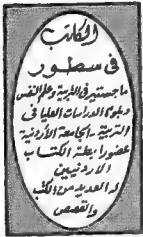 الكاتب
في سطور
ماجستير في التربية وعلم النفس
دبلوم الدراسات العليا في
التربية - الجامعة الأردنية
عضو رابطة الكتاب
الأردنيين
له العديد من الكتب
والقصص